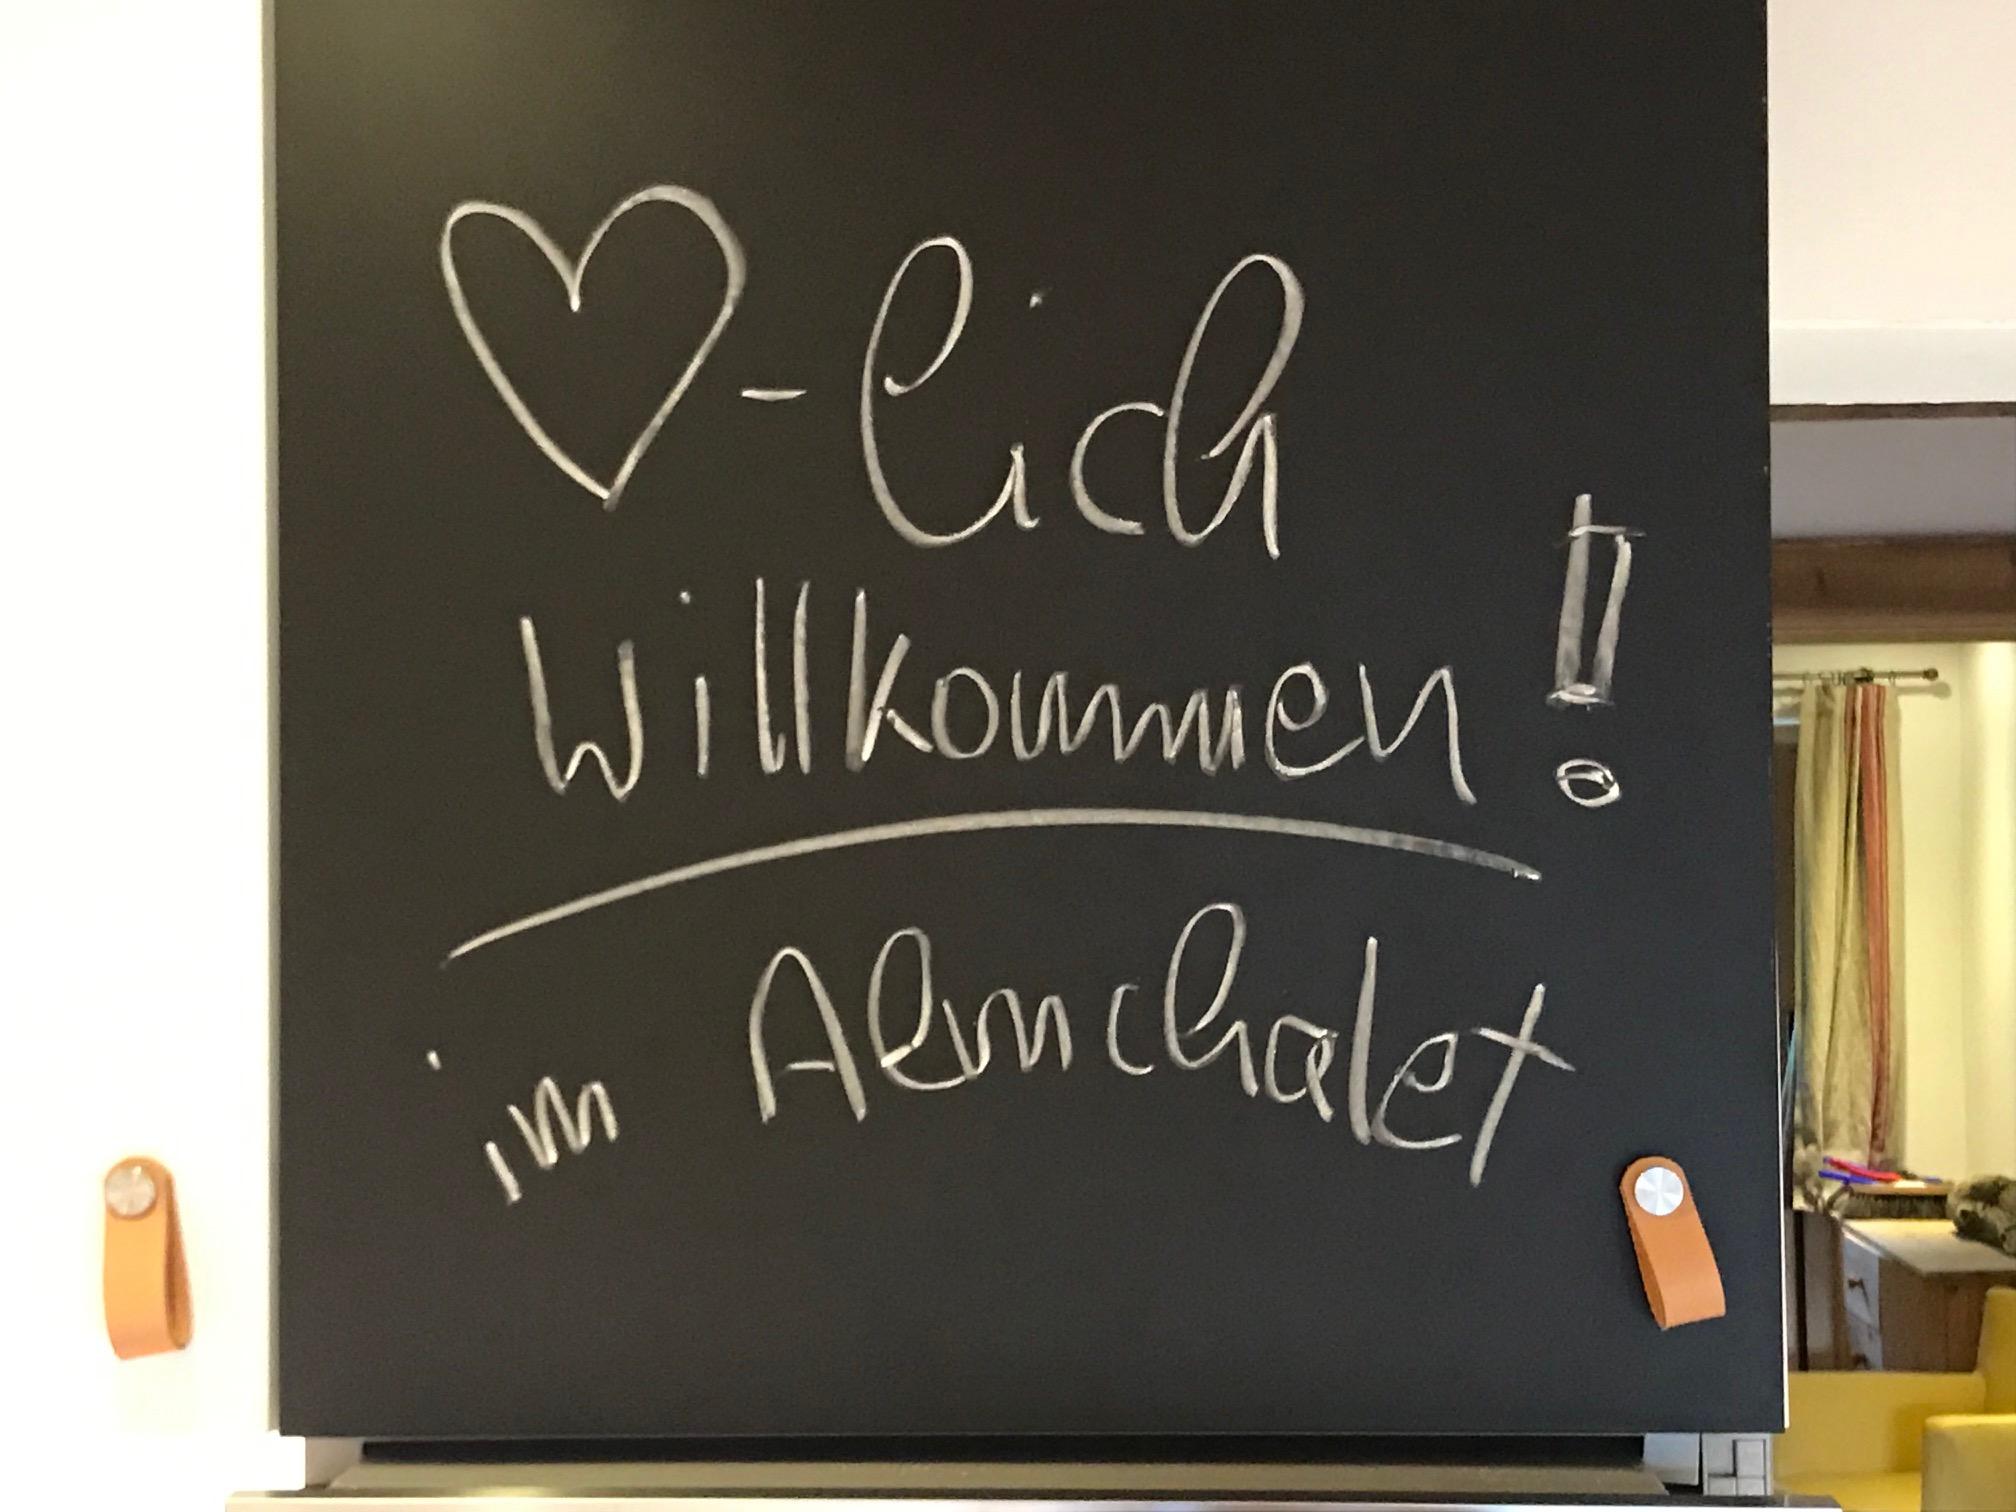 ♡-lich
Willkommen!
im Almchalet